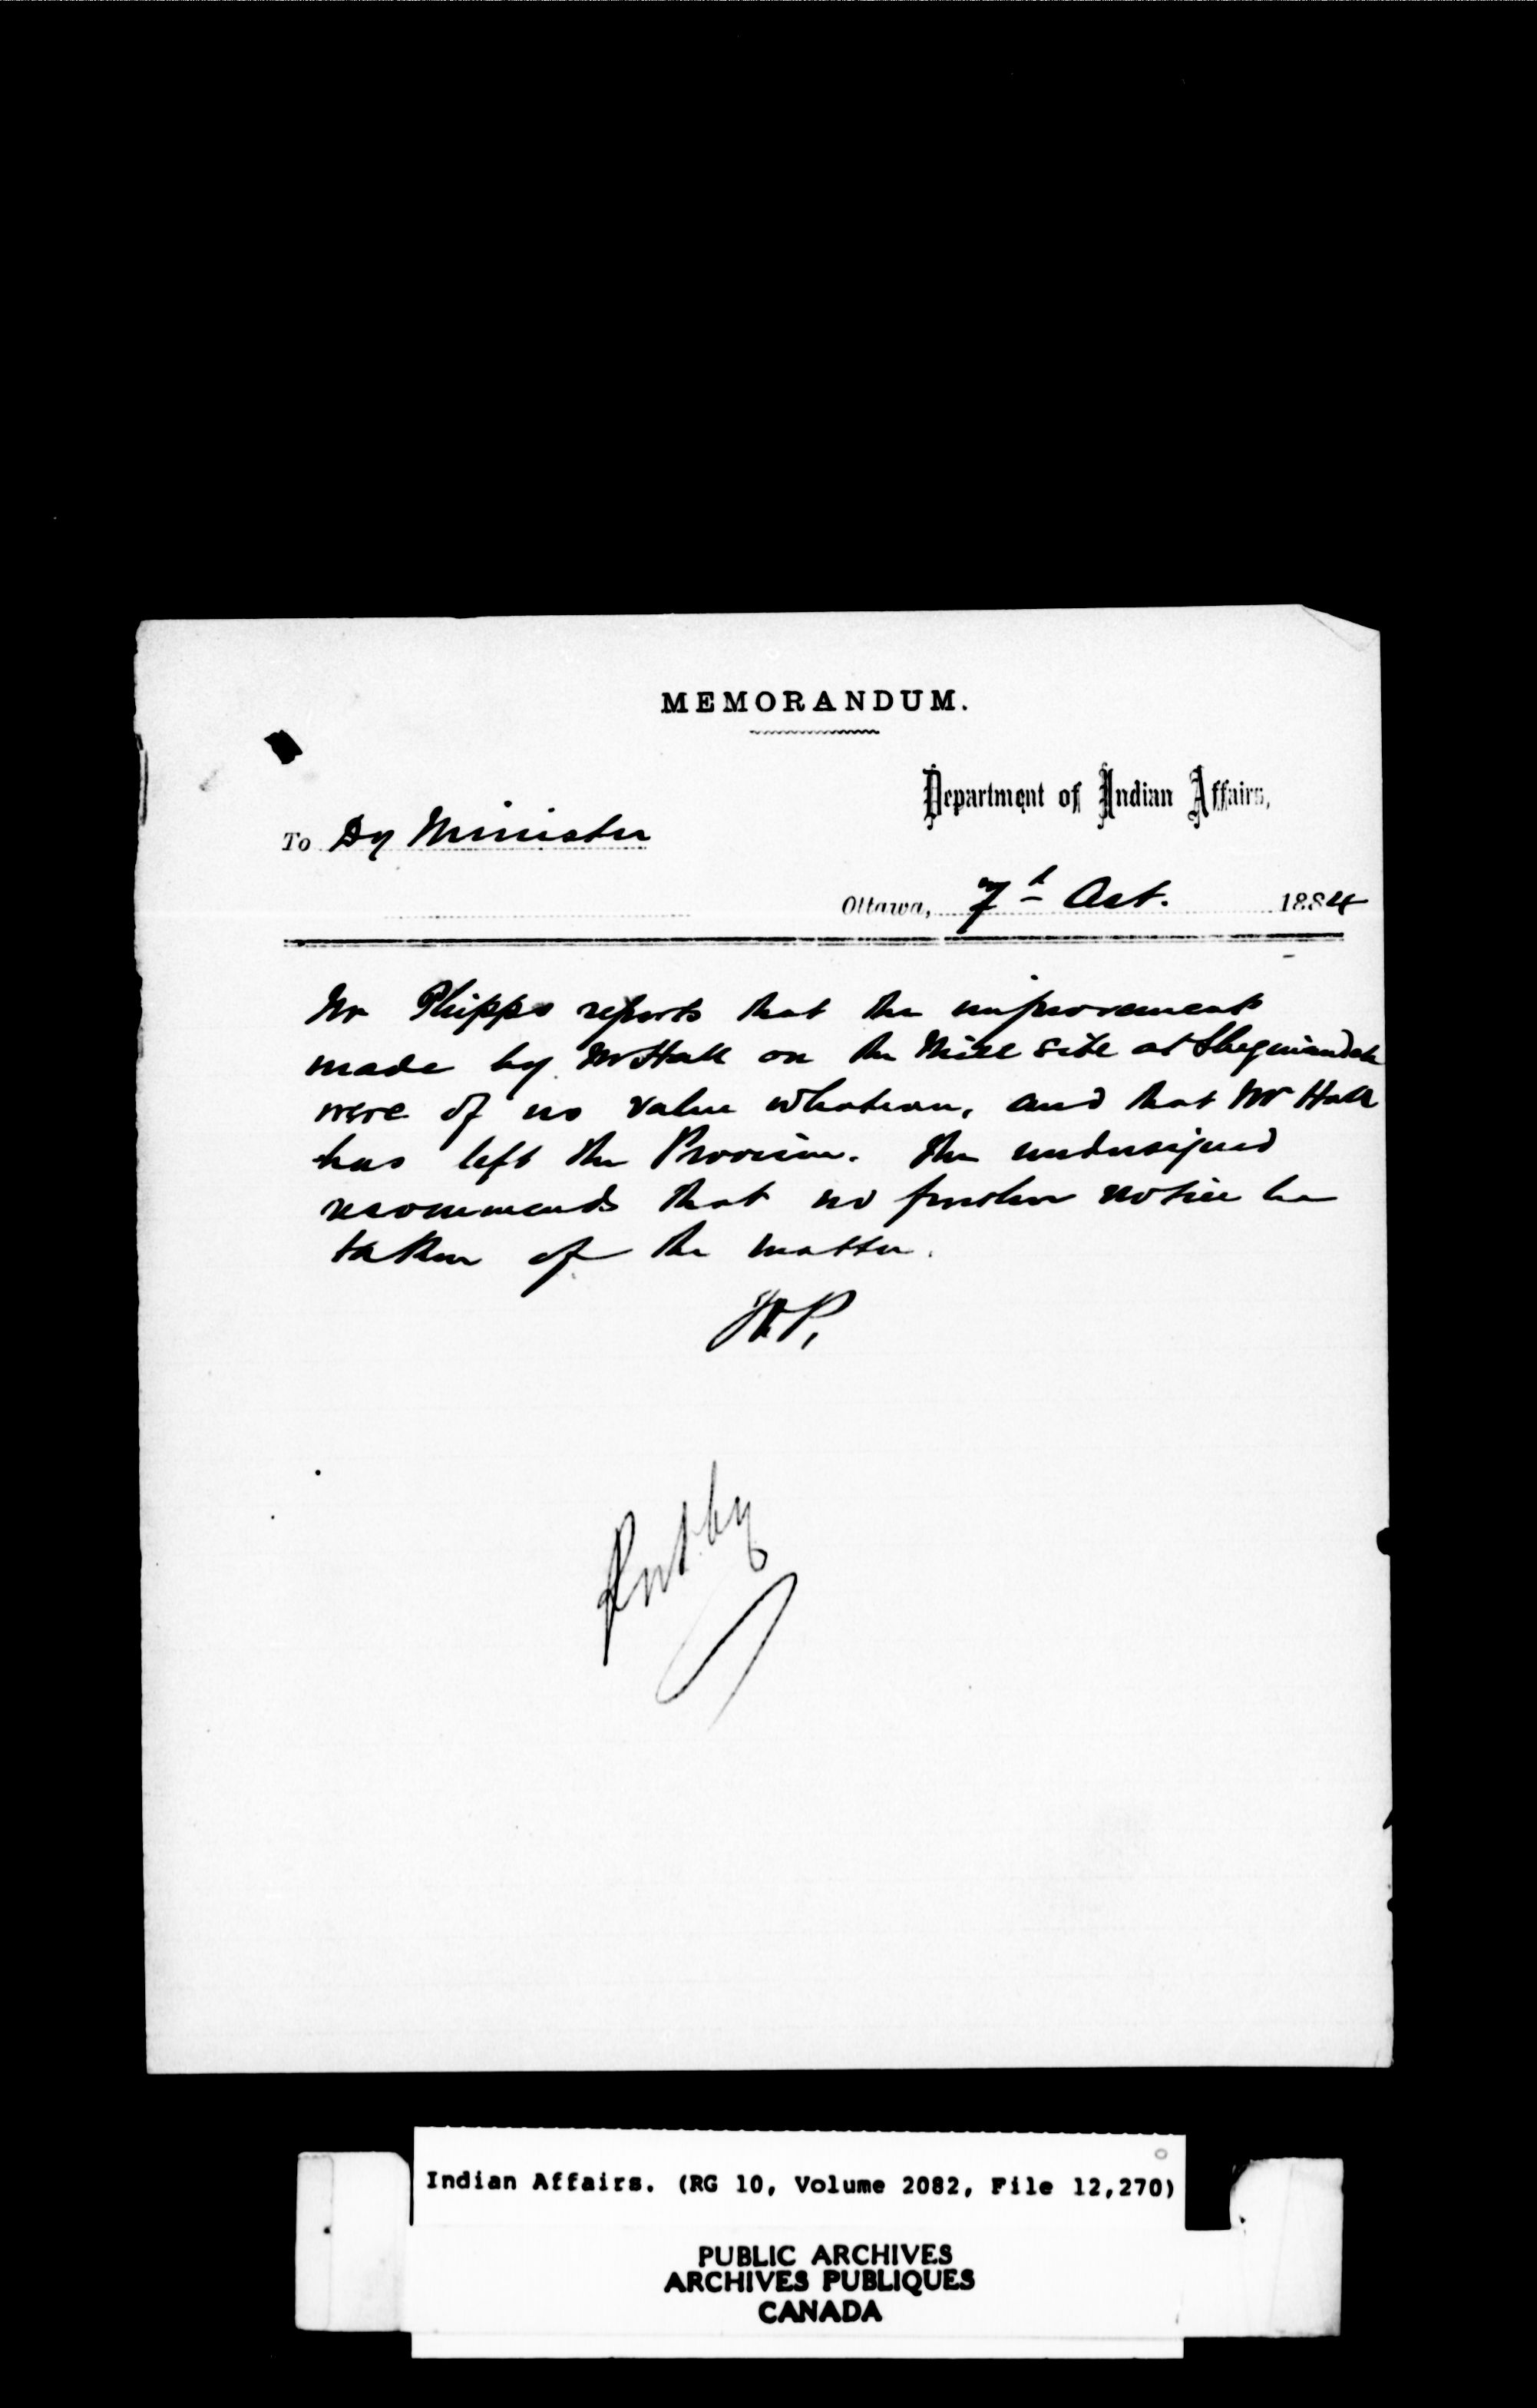 MEMORANDUM.
Department of Indian Affairs,
To Dy Minister
Ottawa, 7th Oct. 1884
Mr Phipps reports that the improvements
made by Mr Hall on the Mill site at Sheguiandah
were of no value whatever, and that Mr Hall
has left the Province. The undersigned
recommends that no further notice be
taken of the matter.
Indian Affairs. (RG 10, Volume 2082, File 12,270)
PUBLIC ARCHIVES
ARCHIVES PUBLIQUES
CANADA